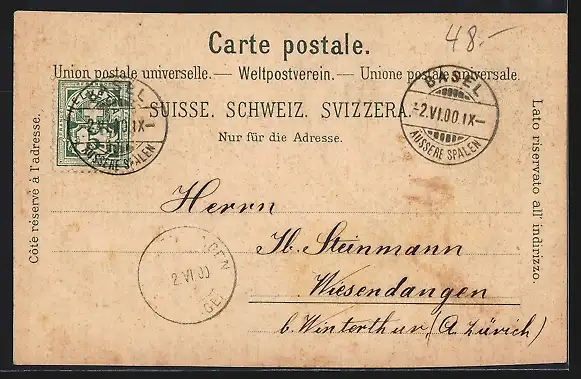 48.-
Carte postale.
Union postale universelle. — Weltpostverein. — Unione postale universale.
SUISSE. SCHWEIZ. SVIZZERA.
Nur für die Adresse.
Côté réservé à l'adresse.
Lato riservato all' indirizzo.
BASEL
-2.VI.00.IX-
ÄUSSERE SPALEN
BASEL
-2.VI.00.IX-
ÄUSSERE SPALEN
2.VI.00
Herrn
Steinmann
Wiesendangen
b. Winterthur, (Zürich)